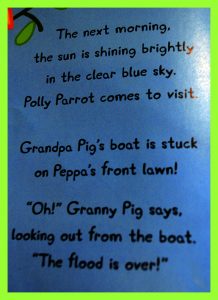 The next morning,
the sun is shining brightly
in the clear blue sky.
Polly Parrot comes to visit.
Grandpa Pig's boat is stuck
on Peppa's front lawn!
"Oh!" Granny Pig says,
looking out from the boat.
"The flood is over!"